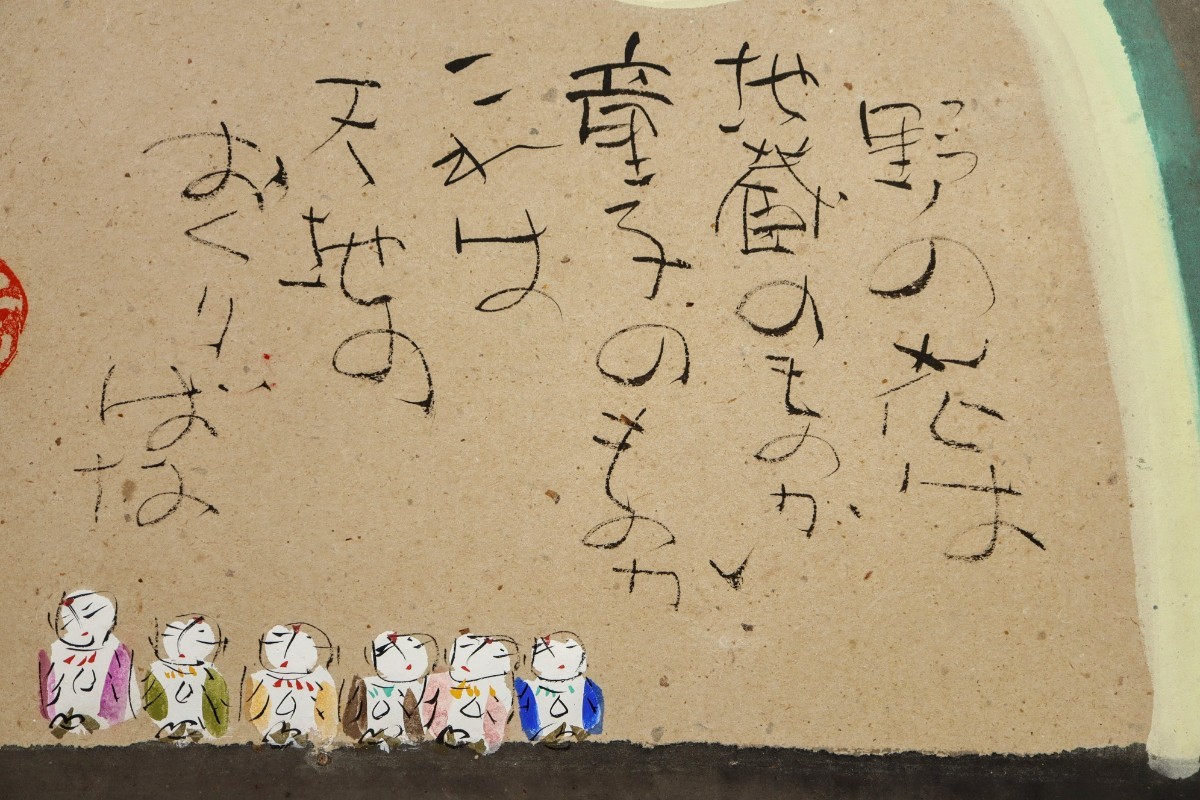 野の花は
地蔵のものか
童子のものか
これは
天地の
おくり
ばな